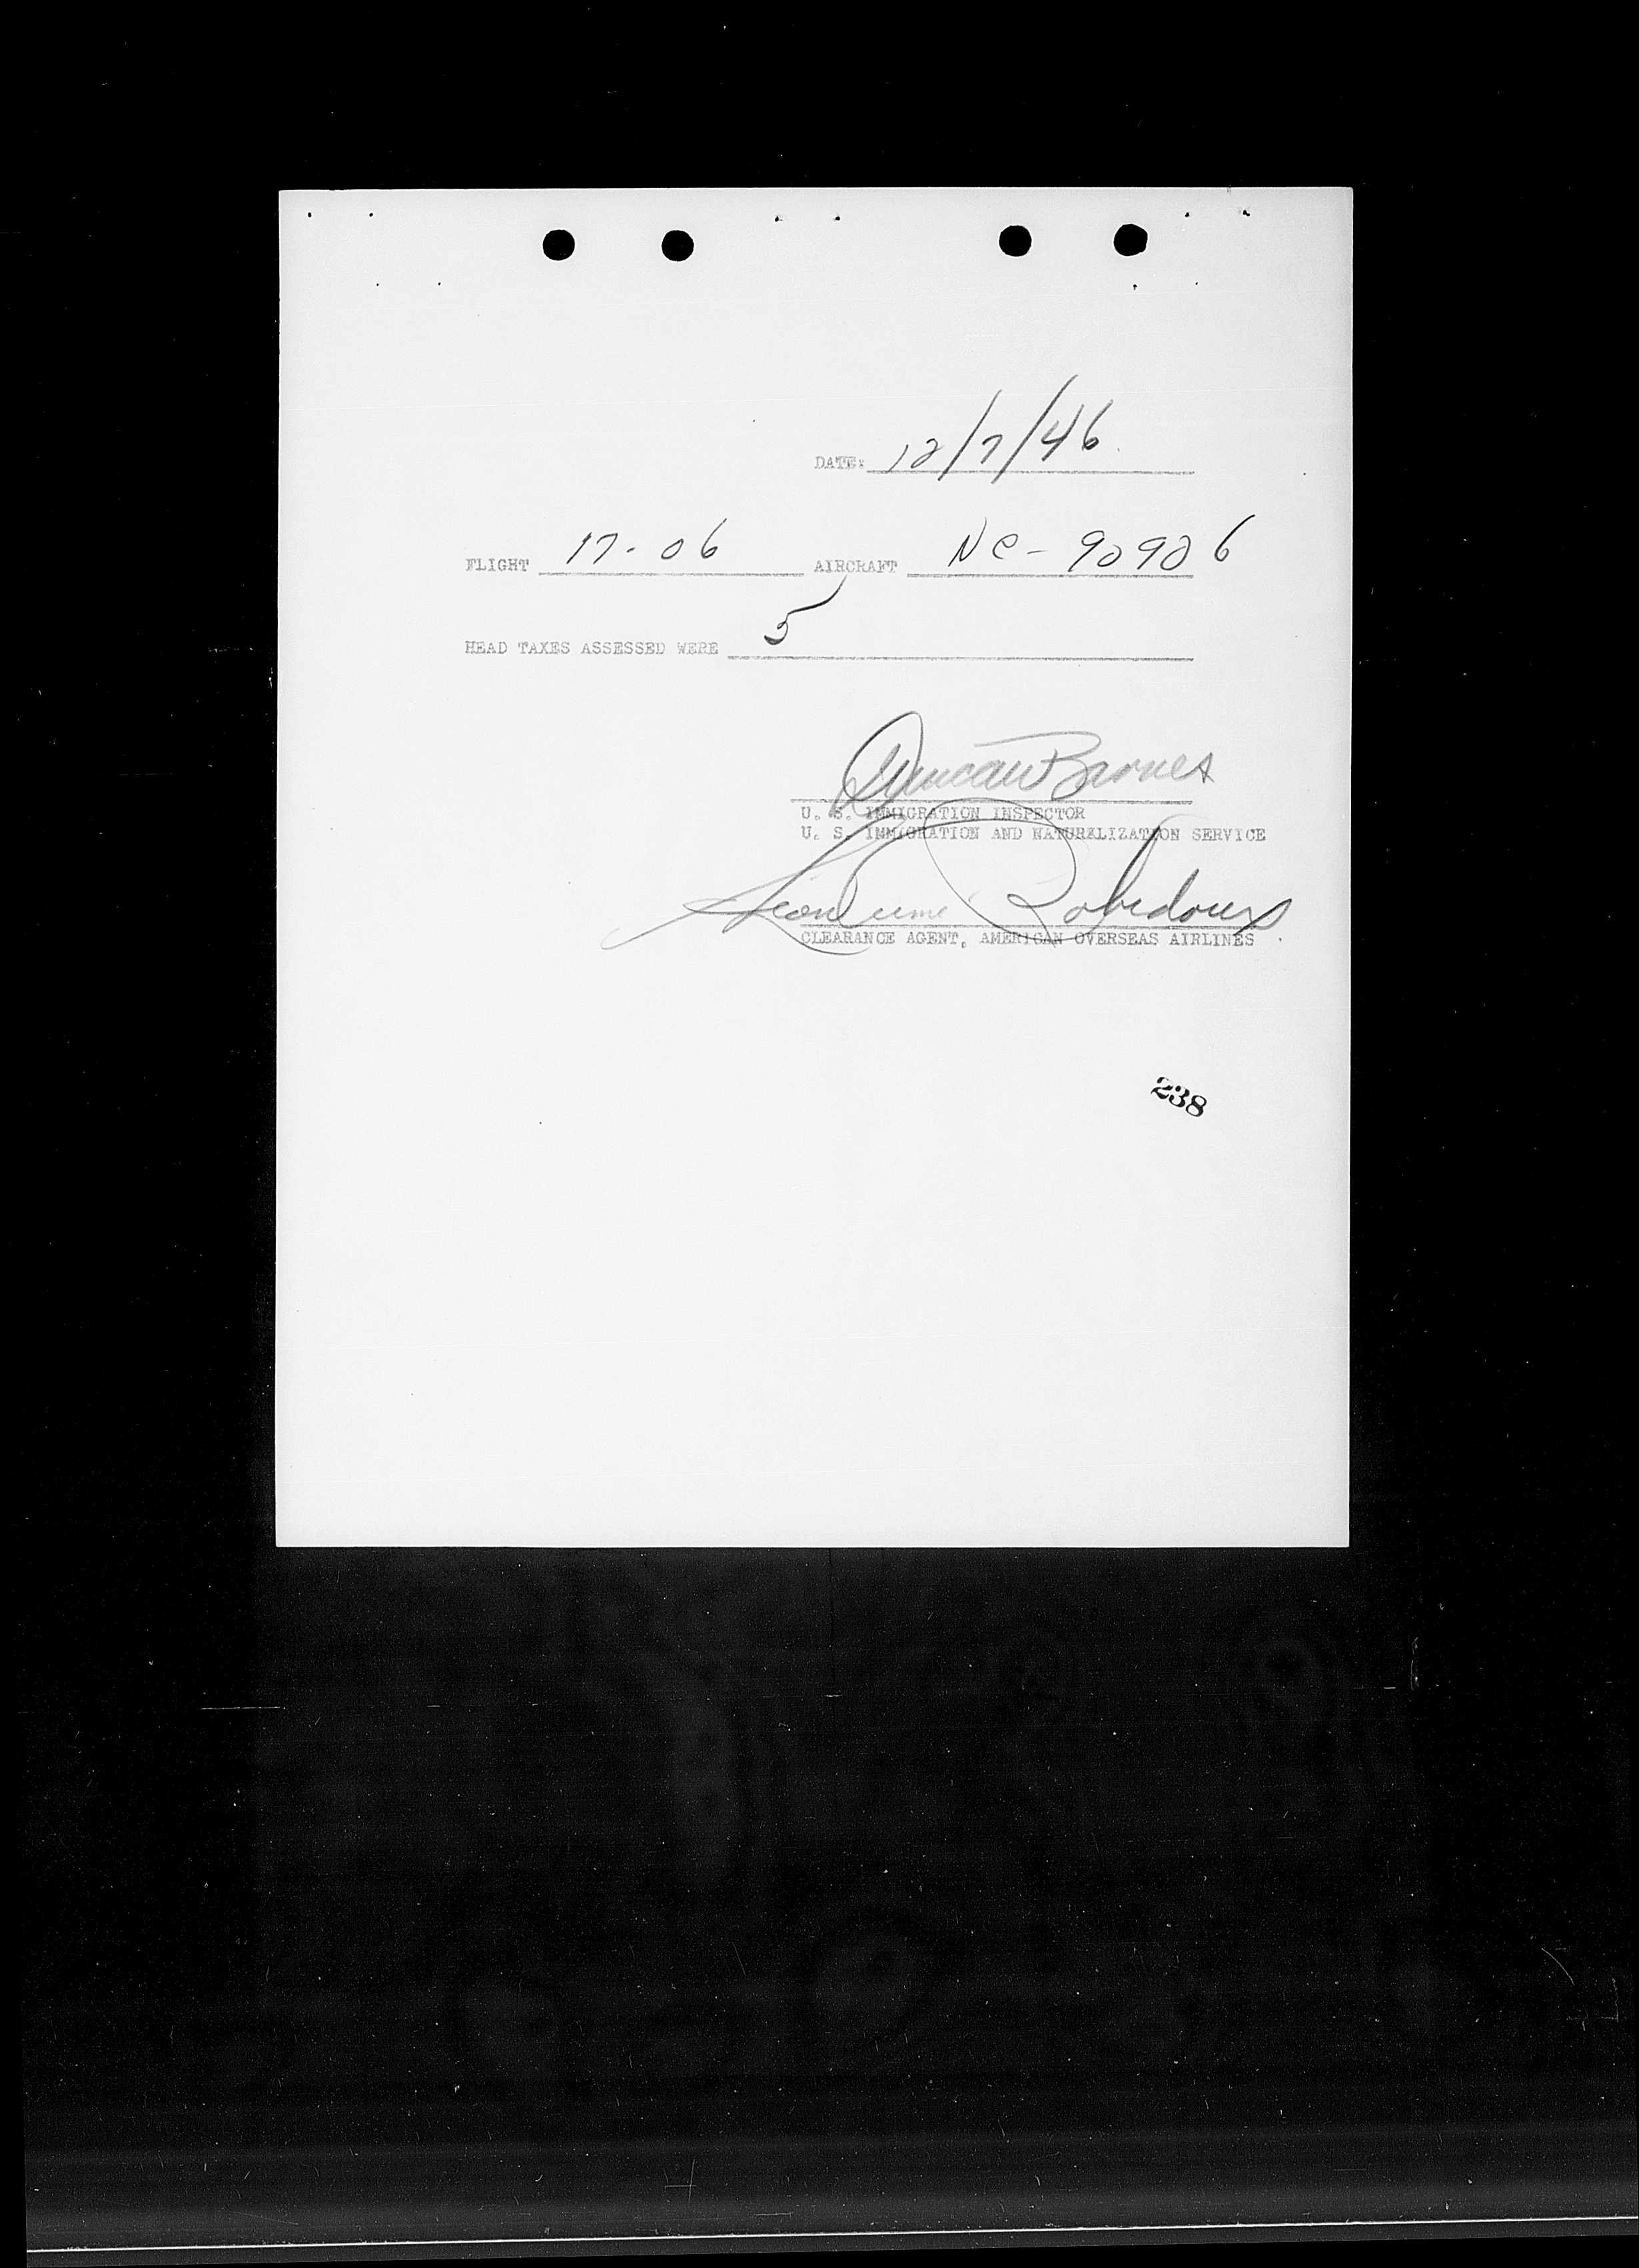 DATE: 12/7/46
FLIGHT 17-06 AIRCRAFT NC-90906
HEAD TAXES ASSESSED WERE 5
Duncan Barnes
U. S. IMMIGRATION INSPECTOR
U. S. IMMIGRATION AND NATURALIZATION SERVICE
Robidoux
CLEARANCE AGENT, AMERICAN OVERSEAS AIRLINES
238